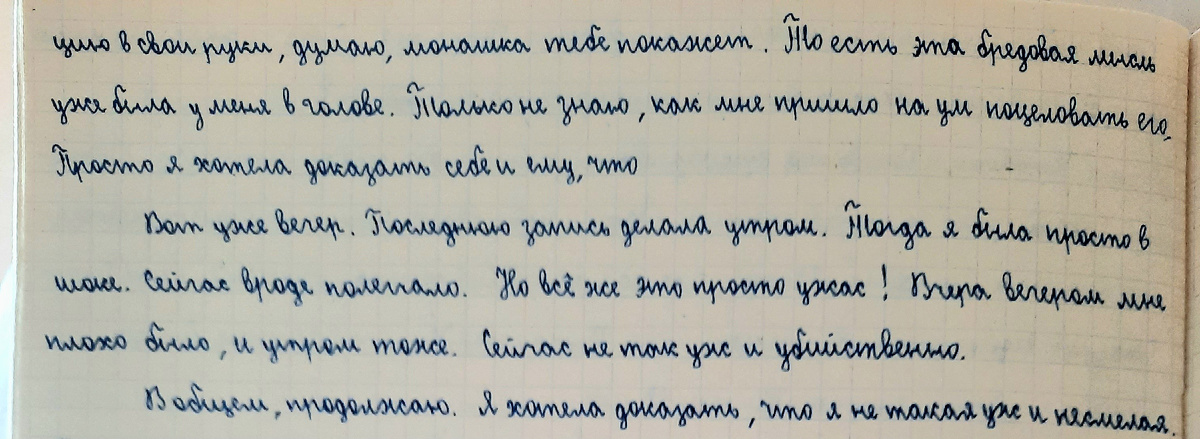 цию в свои руки, думаю, монашка тебе покажет. То есть эта бредовая мысль
уже была у меня в голове. Только не знаю, как мне пришло на ум поцеловать его.
Просто я хотела доказать себе и ему, что
Вот уже вечер. Последнюю запись делала утром. Тогда я была просто в
шоке. Сейчас вроде полегчало. Но всё же это просто ужас! Вчера вечером мне
плохо было, и утром тоже. Сейчас не так уж и убийственно.
В общем, продолжаю. Я хотела доказать, что я не такая уж и несмелая.